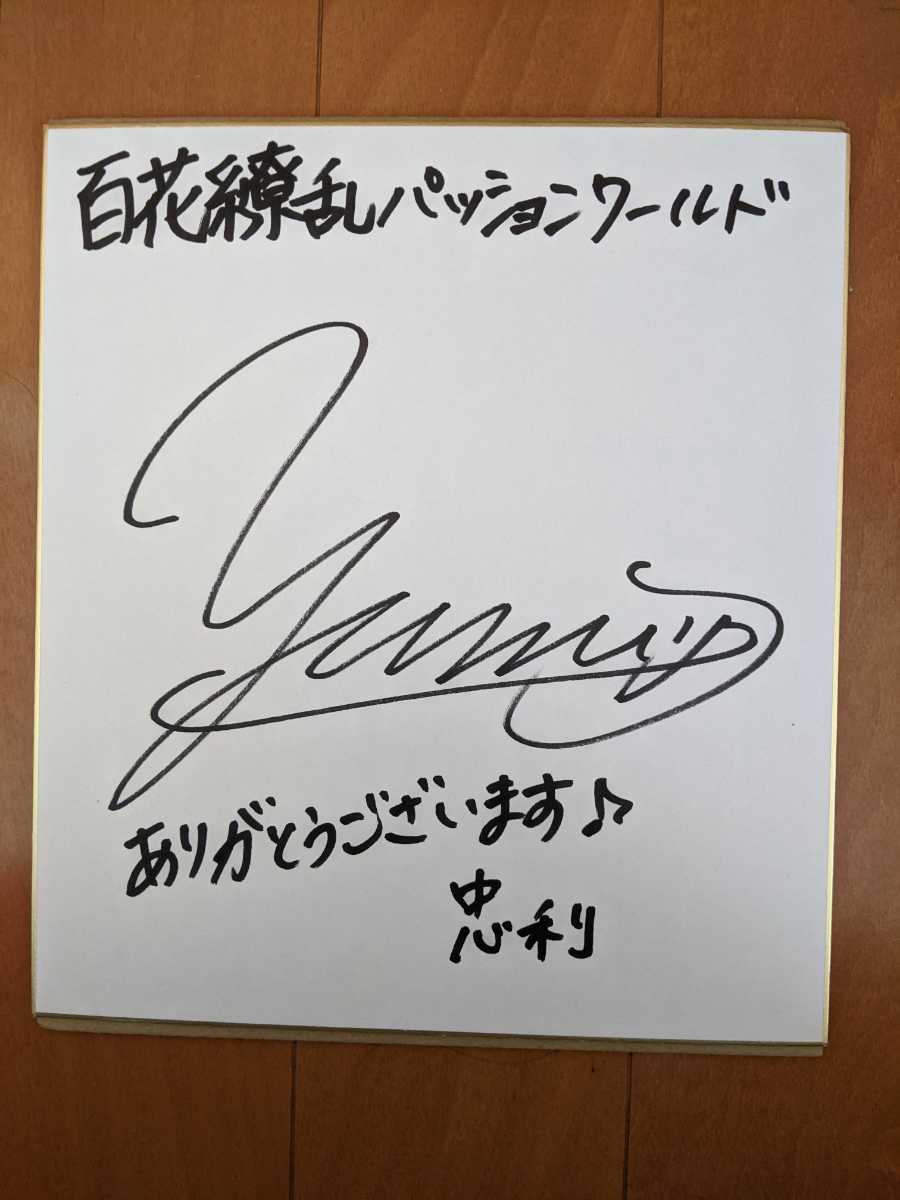 百花繚乱パッションワールド
Yumi
ありがとうございます♪
忠利